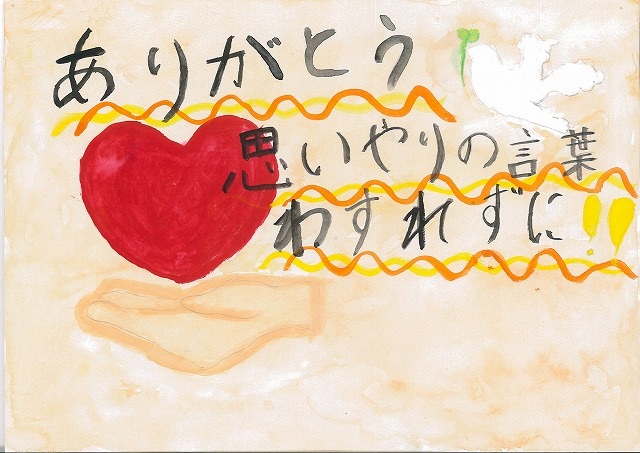 ありがとう
思いやりの言葉
わすれずに!!